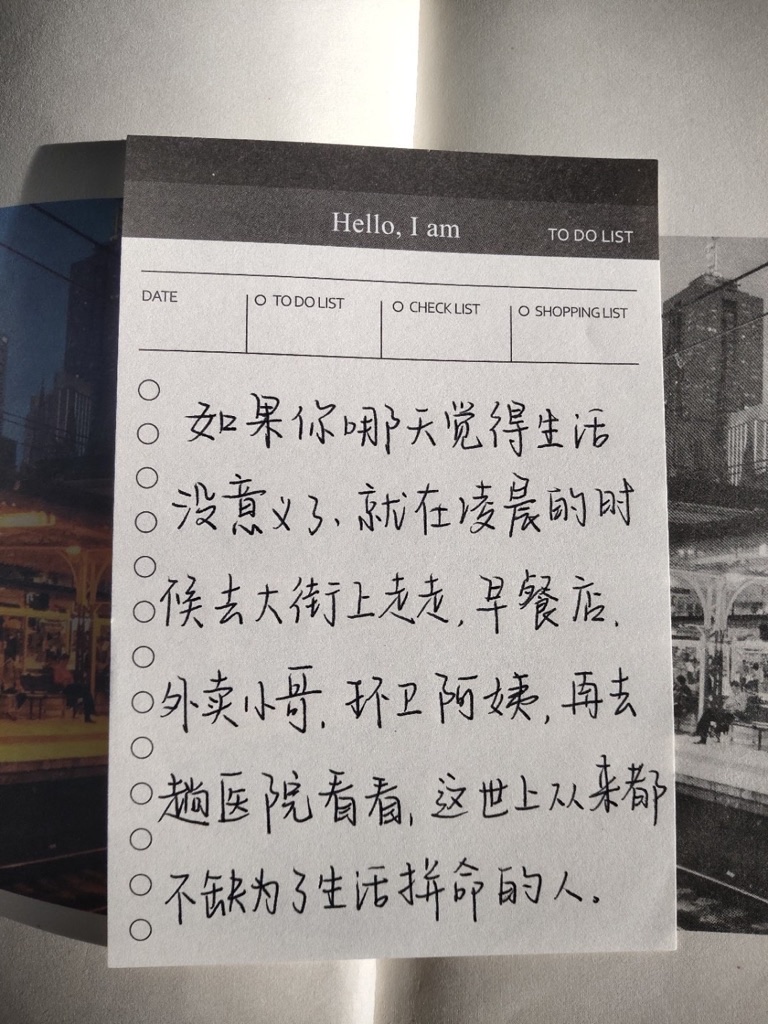 Hello, I am
TO DO LIST
DATE
TO DO LIST
CHECK LIST
SHOPPING LIST
如果你哪天觉得生活
没意义了、就在凌晨的时
候去大街上走走,早餐店.
外卖小哥,环卫阿姨,再去
趟医院看看,这世上从来都
不缺为了生活拼命的人。